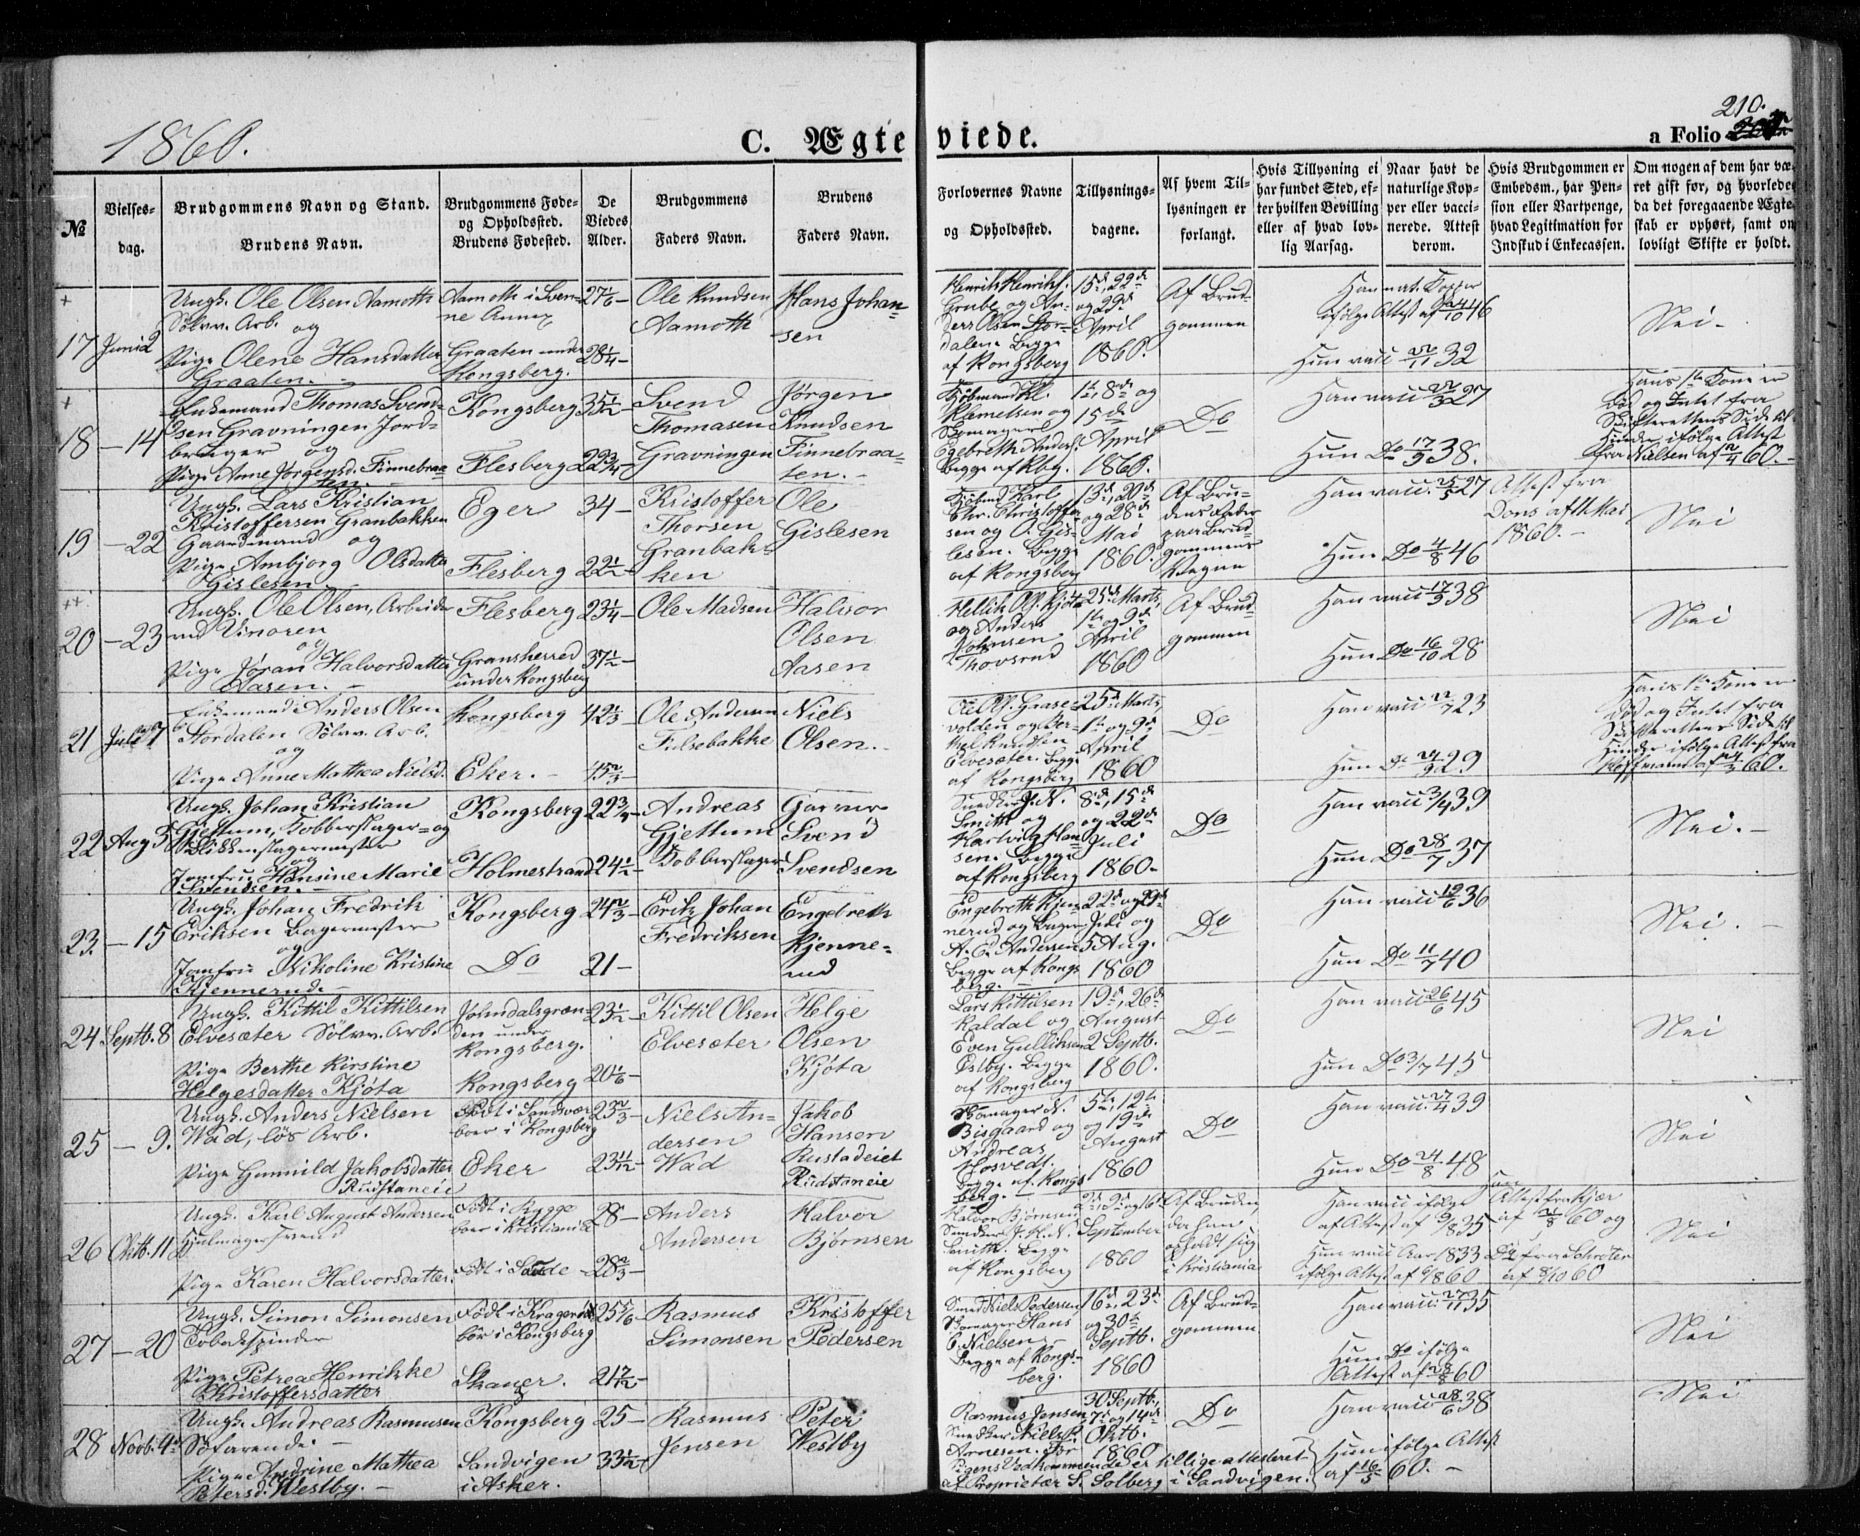 1860.
C. Ægte
viede.
210.
a Folio
No
Vielses-
dag.
Brudgommens Navn og Stand.
Brudens Navn.
Brudgommens Føde-
og Opholdssted.
Brudens Fødested.
De
Viedes
Alder.
Brudgommens
Faders Navn.
Brudens
Faders Navn.
Forlovernes Navne
og Opholdssted.
Tillysnings-
dagene.
Af hvem Til-
lysningen er
forlangt.
Hvis Tillysning ei
har fundet Sted, ef-
ter hvilken Bevilling
eller af hvad lov-
lig Aarsag.
Naar havt de
naturlige Kop-
per eller vacci-
nerede. Attest
derom.
Hvis Brudgommen er
Embedsm., har Pen-
sion eller Vartpenge,
hvad Legitimation for
Indskud i Enkecassen.
Om nogen af dem har væ-
ret gift før, og hvorledes
da det foregaaende Ægte-
skab er ophørt, samt om
lovligt Skifte er holdt.
17 Juni 2
Ungk. Ole Olsen Aamoth
Sølvv. Arb. og
Pige Olene Hansdatter
Graaten.
Aamoth i Sven-
ne Annex
Graaten under
Kongsberg.
27 1/6
28 1/4
Ole Knudsen
Aamoth
Hans Johan-
sen
Henrik Henriks.
Grube og An-
ders Olsen Stor-
dalen Begge
af Kongsberg
15de, 22de
og 29de
April
1860.
Af Brud-
gommen
Han nat. Kopper
ifølge Attest af 46
Hun vacc 32
Nei.
18 - 14
Enkemand Thomas Svend-
sen Gravningen Jord-
bruger og
Pige Anne Jørgensd. Finnebraa-
ten.
Kongsberg
Flesberg
35 1/2
22 3/4
Svend
Thomasen
Gravningen
Jørgen
Knudsen
Finnebraa-
ten.
Klemetsen og
Skomager
Begge af Kbg.
1ste, 8de og
15de
April
1860.
Do
Han vacc 27
Hun Do 17/9 38.
Hans 1ste Kone er
død og Intet fra
Skifterettens Side til
Hinder ifølge Attest
fra Nielsen af 60.
19 - 22
Ungk. Lars Kristian
Kristoffersen Granbakken
Gaardmand og
Pige Ambjørg Olsdatter
Gislesen
Eger
Flesberg
34
22 1/2
Kristoffer
Thorsen
Granbak-
ken
Ole
Gislesen
Karl
Chr. Christoffer-
sen og O. Gis-
lesen. Begge
af Kongsberg
13de, 20de
og 28de
Mai
1860.
Af Bru-
dens Fader
paa Brud-
gommens
Vegne
Han vacc 27
Hun Do 4/8 46
Attest fra
1860.
Nei
20 - 23
Ungk. Ole Olsen, Arbeider
ved Vinoren
og
Pige Jøran Halvorsdatter
Aasen.
Flesberg
Gransherred
under Kongsberg
23 1/4
37 1/2
Ole Madsen
Halvor
Olsen
Aasen
Hellik Ols. Kjøta
og Anders
Johnsen
Thovsrud
25de Marts,
1ste og 9de
April
1860
Af Brud-
gommen
Han vacc 17/9 38
Hun Do 16/10 28
Nei
21 Juli 7
Enkemand Anders Olsen
Stordalen Sølvv. Arb.
og
Pige Anne Mathea Nielsd.
Kongsberg
Eker.
42 1/3
45 2/3
Ole Andersen
Niels
Olsen.
volden og Ber-
thel Knudsen
Elvesæter. Begge
af Kongsberg
25de Marts,
1ste og 9de
April
1860
Do
Han vacc 23
Hun Do 29
Hans 1ste Kone er
død og Intet fra
Skifterettens Side til
Hinder ifølge Attest fra
Hoffmann af 60.
22 Aug 5
Ungk. Johan Kristian
Gjettum, Kobberslager- og
Blikkenslagermester
og
Jomfru Hansine Marie
Svendsen.
Kongsberg
Holmestrand
22 3/4
24 1/2
Andreas
Gjettum
Kobberslager
Garver
Svend
Svendsen
Snedker J. N.
Smith og
Hartvig Han-
sen. Begge
af Kongsberg
8de, 15de
og 22de
Juli
1860.
Do
Han vacc 3/4 39
Hun Do 28/7 37
Nei.
23. - 15
Ungk. Johan Fredrik
Eriksen Bagermester
og
Jomfru Nikoline Kristine
Kjennerud.
Kongsberg
Do
24 2/3
21
Erik Johan
Fredriksen
Engebreth
Kjenne-
rud
Engebreth Kjen-
nerud og Bager
A. C. Andersen
Begge af Kongs-
berg.
22de og 29de
Juli og
5 Aug.
1860
Do
Han vacc 36
Hun Do 11/7 40
Nei.
24 Septb. 8
Ungk. Kittil Kittilsen
Elvesæter Sølvv. Arb.
Pige Berthe Kirstine
Helgesdatter Kjøta
Johndalsgræn-
den under
Kongsberg.
Kongsberg
23 1/2
20 1/6
Kittil Olsen
Elvesæter
Helge
Olsen
Kjøta
Lars Kittilsen
Kaldal og
Even Gulliksen
Østby. Begge
af Kongsberg
19de, 26de
August
2 Septb.
1860.
Do
Han vacc 26/6 45
Hun Do 3/7 45
Nei
25 - 9.
Ungk. Anders Nielsen
Wad, løs Arb.
Pige Gunnild Jakobsdatter
Rustaneie
Født i Sandsvær
boer i Kongsberg
Eker
23 2/3
23 1/12
Niels An-
dersen
Wad
Jakob
Hansen
Rustadeiet
Rudstaneie
Skomager N.
Bisgaard og
Andreas
Hosvedt.
Begge af Kongs-
berg.
5te, 12te
og 19de
August
1860
Do
Han vacc. 39
Hun Do 48
Nei
26 Oktb. 11
Ungk. Karl August Andersen
Hjulmagersvend
Pige Karen Halvorsdatter
Født i Rygge
boer i Kristiania
Født i Sande
28
28 2/3
Anders
Andersen
Halvor
Bjørnsen
Halvor Bjørnsen
Snedker J. N.
Smith. Begge
af Kongsberg
2de, 9de og 16de
September
1860
Af Bruden,
da han
opholdt sig
i Kristiania
Han vacc ifølge
af Attest af 9/8 35
Hun vacc Aar 1833
ifølge Attest af 6/8 60
Attest fra Kjær
af 60 og
Do fra Schrøter
af 8/10 60
Nei
27 - 20
Ungk. Simon Simonsen
Tobakspinder
Pige Petrea Henrikke
Kristoffersdatter
Født i Kragerø
bor i Kongsberg
Skauer.
25 5/6
21 7/12
Rasmus
Simonsen
Kristoffer
Pedersen
Smed Niels Pedersen
Skomager Hans
C. Nielsen.
Begge af Kongs-
berg.
16de, 23de
og 30te
Septb.
1860
Af Brud-
gommen
Han vacc. 35
Hun Do ifølge
Attest af 60
Nei
28 Novb. 4de
Ungk. Andreas Rasmusen
Søfarende.
Pige Andrine Mathea
Petersd. Westby.
Kongsberg
Sandvigen
i Asker.
25
33 1/2
Rasmus
Jensen
Peter
Westby
Rasmus Jensen
Snedker Niels
Arnesen. For
Pigens Vedkommende er tillige attesteret
af Proprietær S. Solberg i Sandvigen.
30 Septb.,
7de og 14de
Oktb.
1860
Do
Han vacc 28/6 38
Hun ifølge Attest
af 16/5 60.
Nei